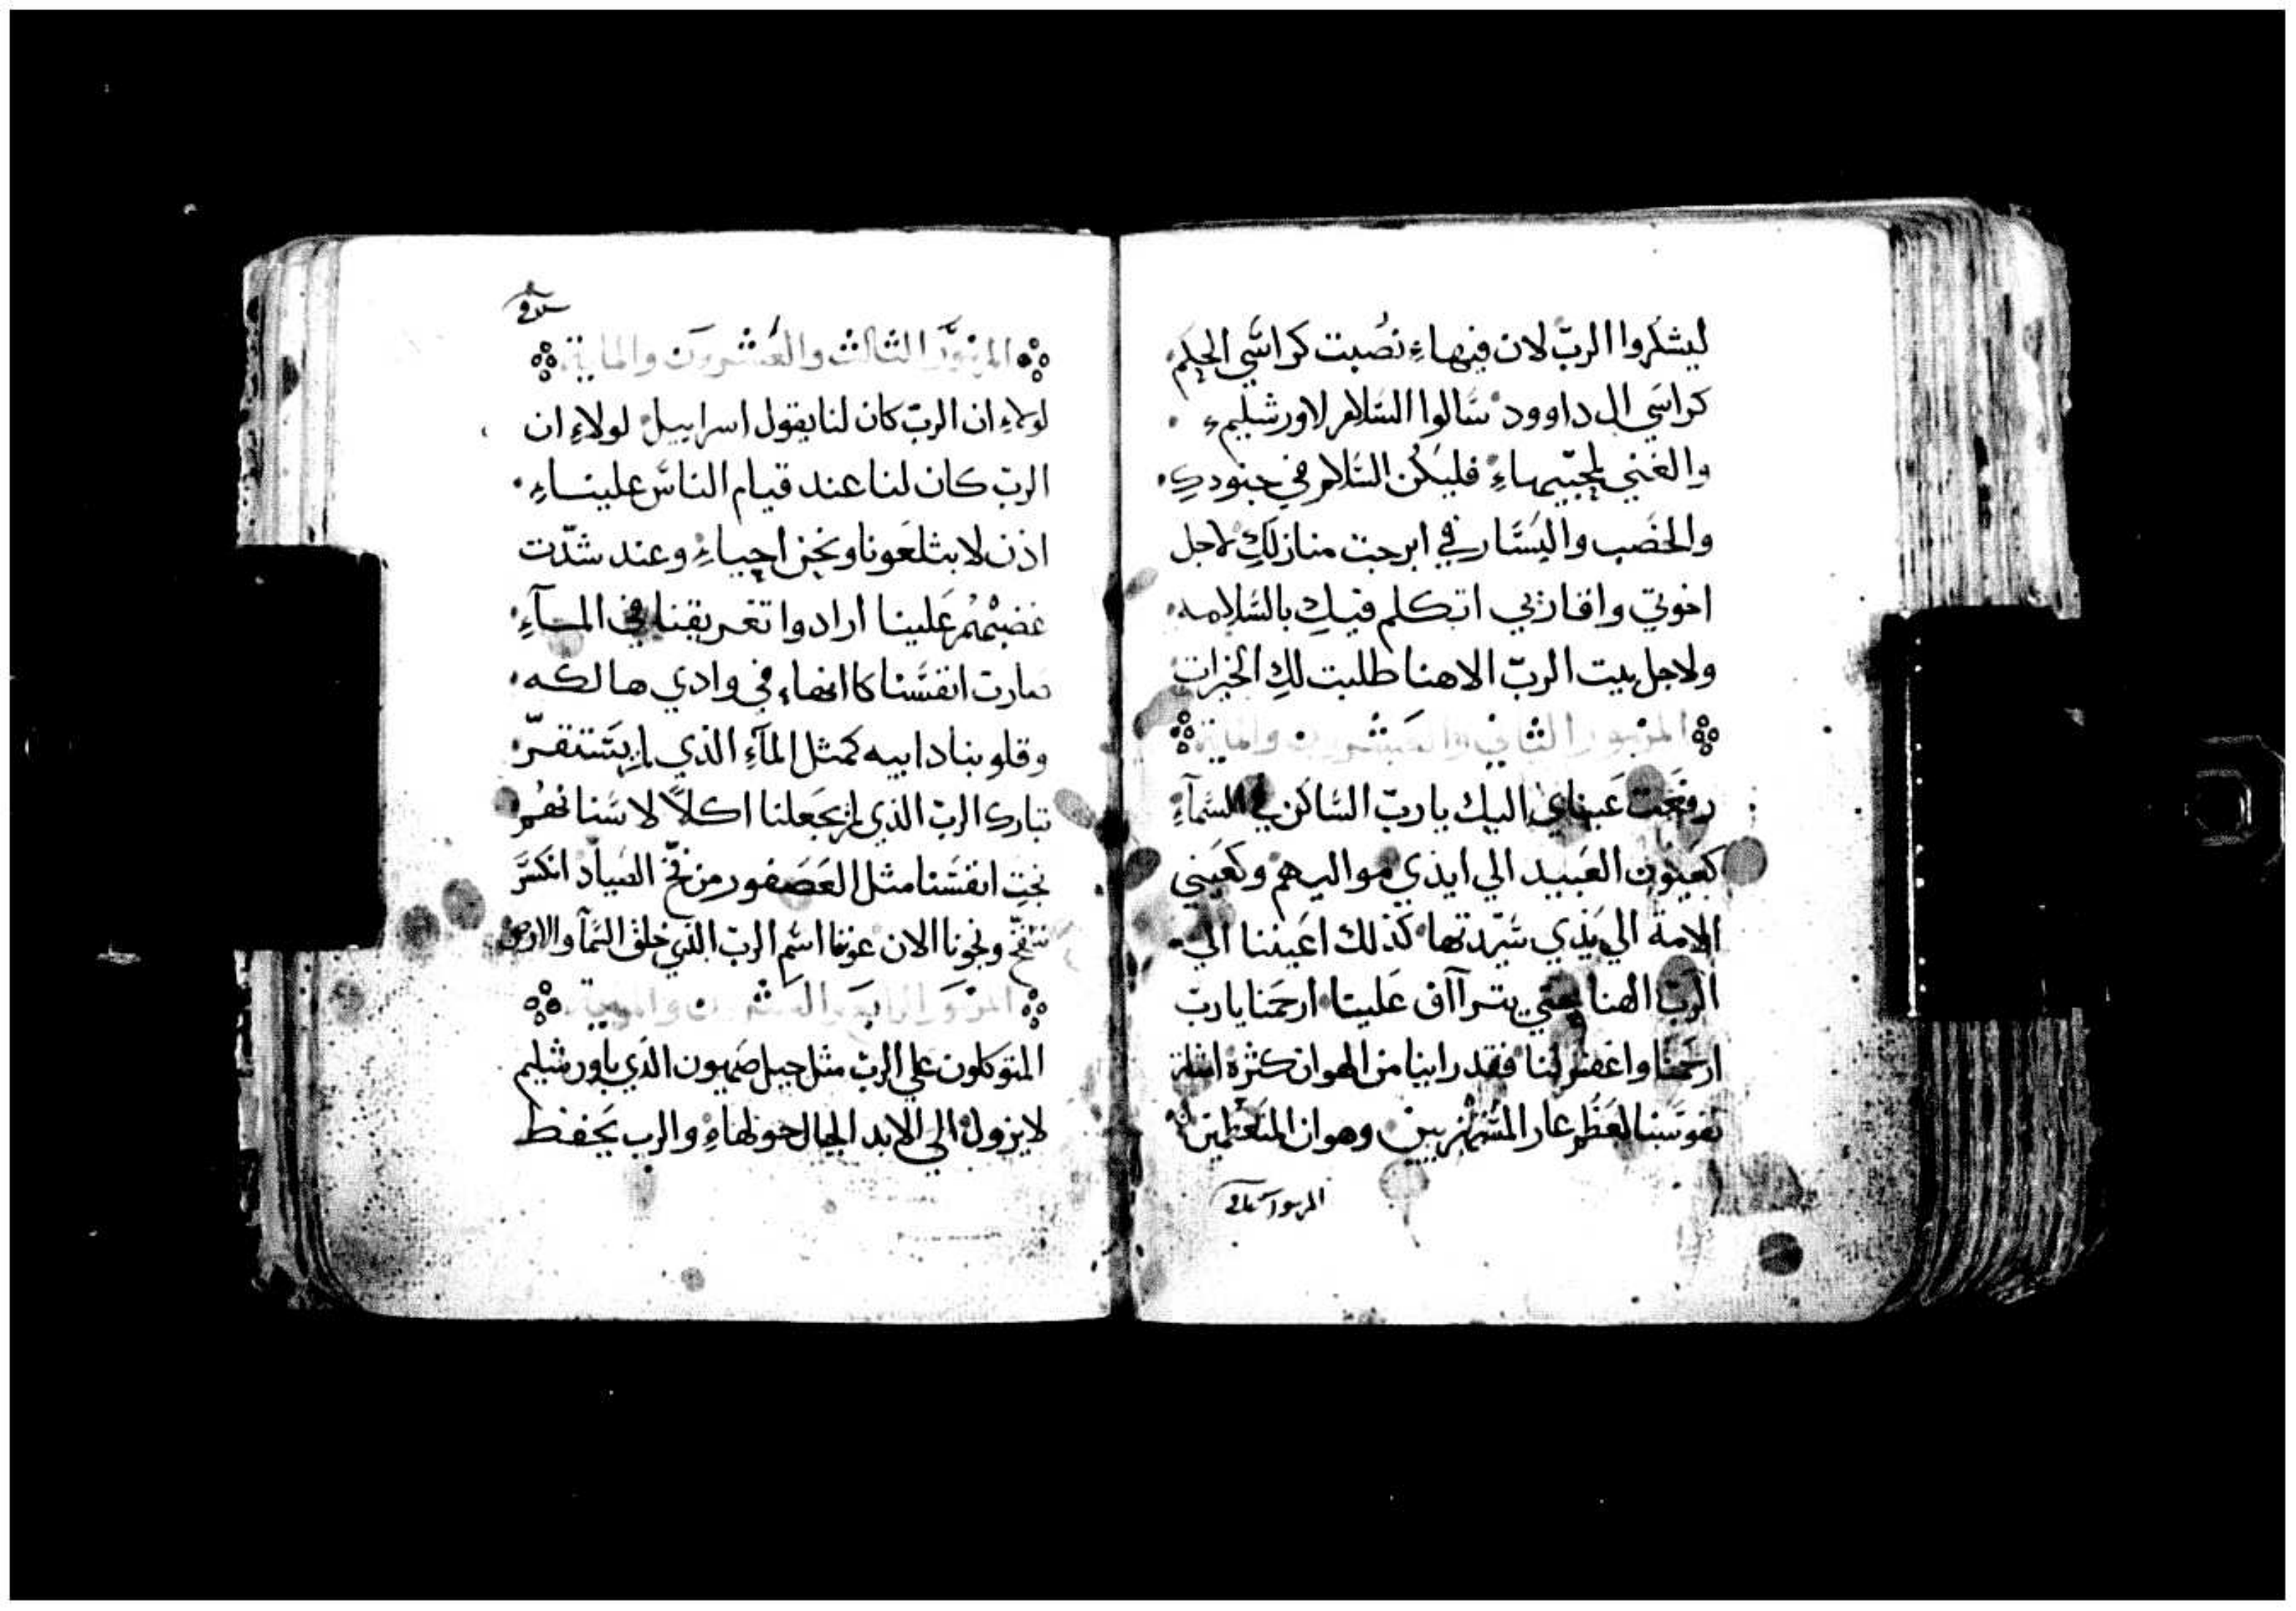 ليشكروا الربّ لان فيهاءِ نصُبت كراسَي الحكم
كراسَي ال داوود سَالوا السَلام لاورشليمءِ
والغني لمحبّيهاءِ فليَكُن السَلام في جنودكِ
والخصَب واليسَار في ابرجت منازلكِ لاجل
اخوتي واقاربي اتكلم فيكِ بالسَلامه
ولاجل بيت الربّ الاهنا طلبت لكِ الخيرات
المزبور الثاني والعشرون والماية
رفعَت عَيناي اليك يا ربّ السَاكن في السَمآءِ
كعَيون العَبيد الي ايدي مواليهم وكعَيني
الامة الي يَدي سَيّدتها كذلك اعَيننا الي
الربّ الهنا حتي يترآاف عَلينا ارحَمنا يا ربّ
ارحَمنا واغفر لنا فقد راينا من الهوان كثرة
نفوسَنا العَظم عار المسَتهزيين وهوان المتعَظمين
المزبور
المزبوَر الثالث والعُشرون والماية
لولاءِ ان الربّ كان لنا يقول اسراييل لولاءِ ان
الربّ كان لنا عند قيام الناسَ عليناءِ
اذن لابتلعَونا ونحن احياءِ وعند شدّت
غضبهُم عَلينا ارادوا تغريقنا في المآءِ
انفسَنا كاانهاء في وادي هالكه
وقلوبنا دابيه كمثل المآءِ الذي لم يسَتقرّ
تبارك الربّ الذي لم يجعَلنا اكلاً لاسَنانهُم
نجت انفسَنا مثل العَصَفور من فخّ الصَياد انكسَر
الفخّ ونجونا الان عوننا اسَم الربّ الذي خلق السَمآ والارض
المزبوَر الرابعَ والعَشرون والماية
المتوكلون علي الربّ مثل جبل صَهيون الذي باورشليم
لا يزول الي الابد الجبال حولهاءِ والرب يَحفظ